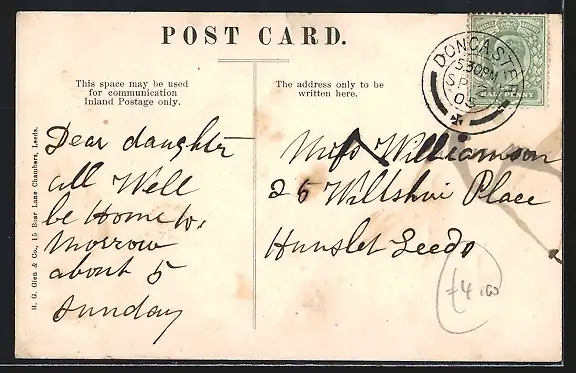 POST CARD.
This space may be used
for communication
Inland Postage only.
The address only to be
written here.
DONCASTER
5.30 PM
SP
05
HALFPENNY
Dear daughter
all Well
be Home to.
Morrow
about 5
Sunday
Miss Williamson
25 Wiltshire Place
Hunslet Leeds
£4.00
H. G. Glen & Co., 15 Boar Lane Chambers, Leeds.